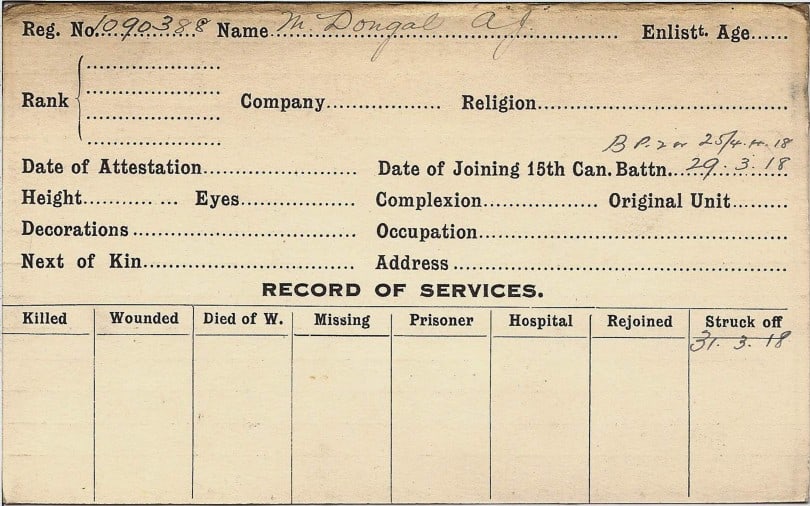 Reg. No. 1090388 Name M. Dongal A.J. Enlistt. Age
Rank Company Religion
25/4 18
Date of Attestation Date of Joining 15th Can. Battn. 29.3.18
Height Eyes Complexion Original Unit
Decorations Occupation
Next of Kin Address
RECORD OF SERVICES.
Killed Wounded Died of W. Missing Prisoner Hospital Rejoined Struck off
31.3.18